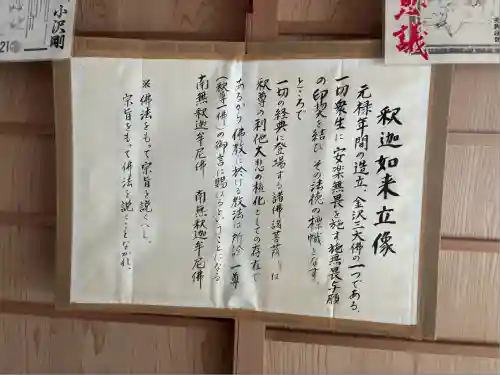 釈迦如来立像
元禄年間の造立、金沢三大佛の一つである。
一切衆生に安楽無畏を施す施無畏与願
の印契を結び、その法徳の標幟となす。
ところで
一切の経典に登場する諸佛諸菩薩は
釈尊の利他大悲の権化としての存在で
あるから佛教に於ける教法は所詮一尊
(釈尊一佛)の御言に帰するということになる
南無釈迦牟尼佛 南無釈迦牟尼佛
※佛法をもって宗旨を説くべし。
宗旨をもって佛法を説くことなかれ。
小沢剛
21
思議